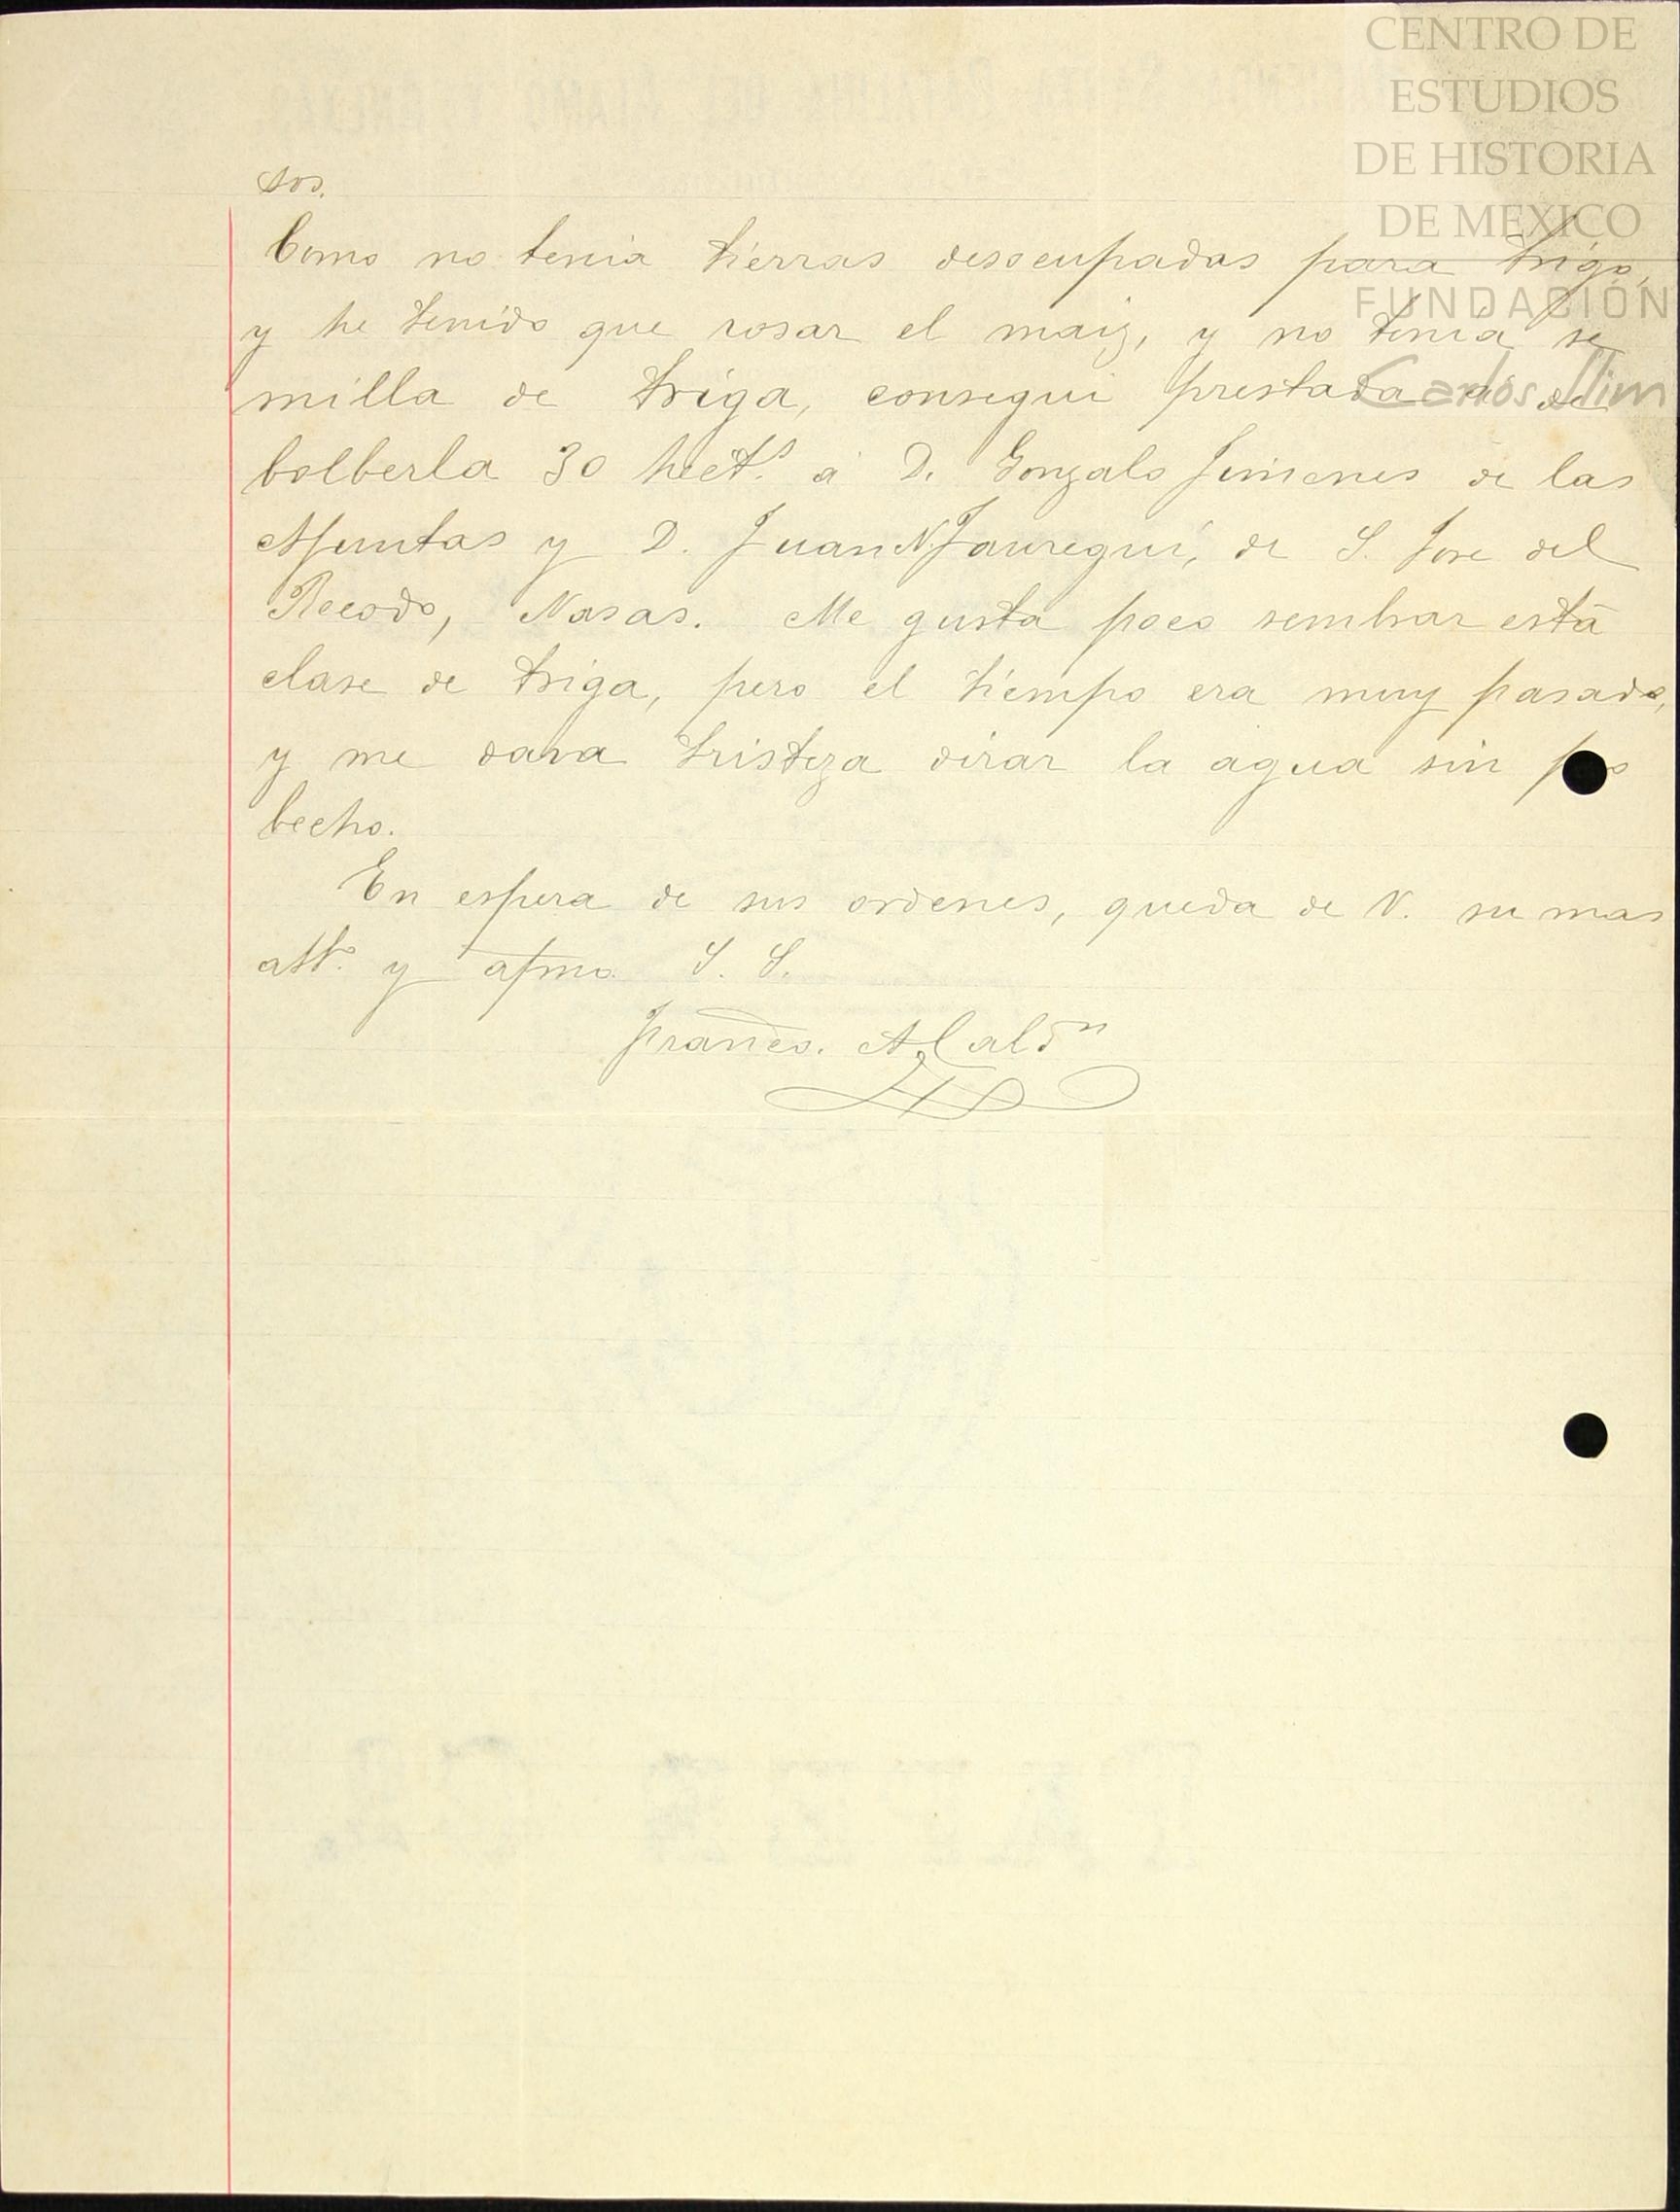 CENTRO DE
ESTUDIOS
DE HISTORIA
DE MEXICO
FUNDACIÓN
Carlos Slim
sos.
Como no tenia tierras desocupadas para trigo,
y he tenido que rosar el maiz, y no tenia se
milla de triga, consegui prestada á de
bolberla 30 hect.s á D. Gonzalo Jimenes de las
Ajuntas y D. Juan N. Jauregui, de S. Jose del
Recodo, Nasas. Me gusta poco sembrar esta
clase de triga, pero el tiempo era muy pasado,
y me dava tristeza dirar la agua sin pro
becho.
En espera de sus ordenes, queda de V. su mas
att.o y afmo. S. S.
Francco. A. Caldn